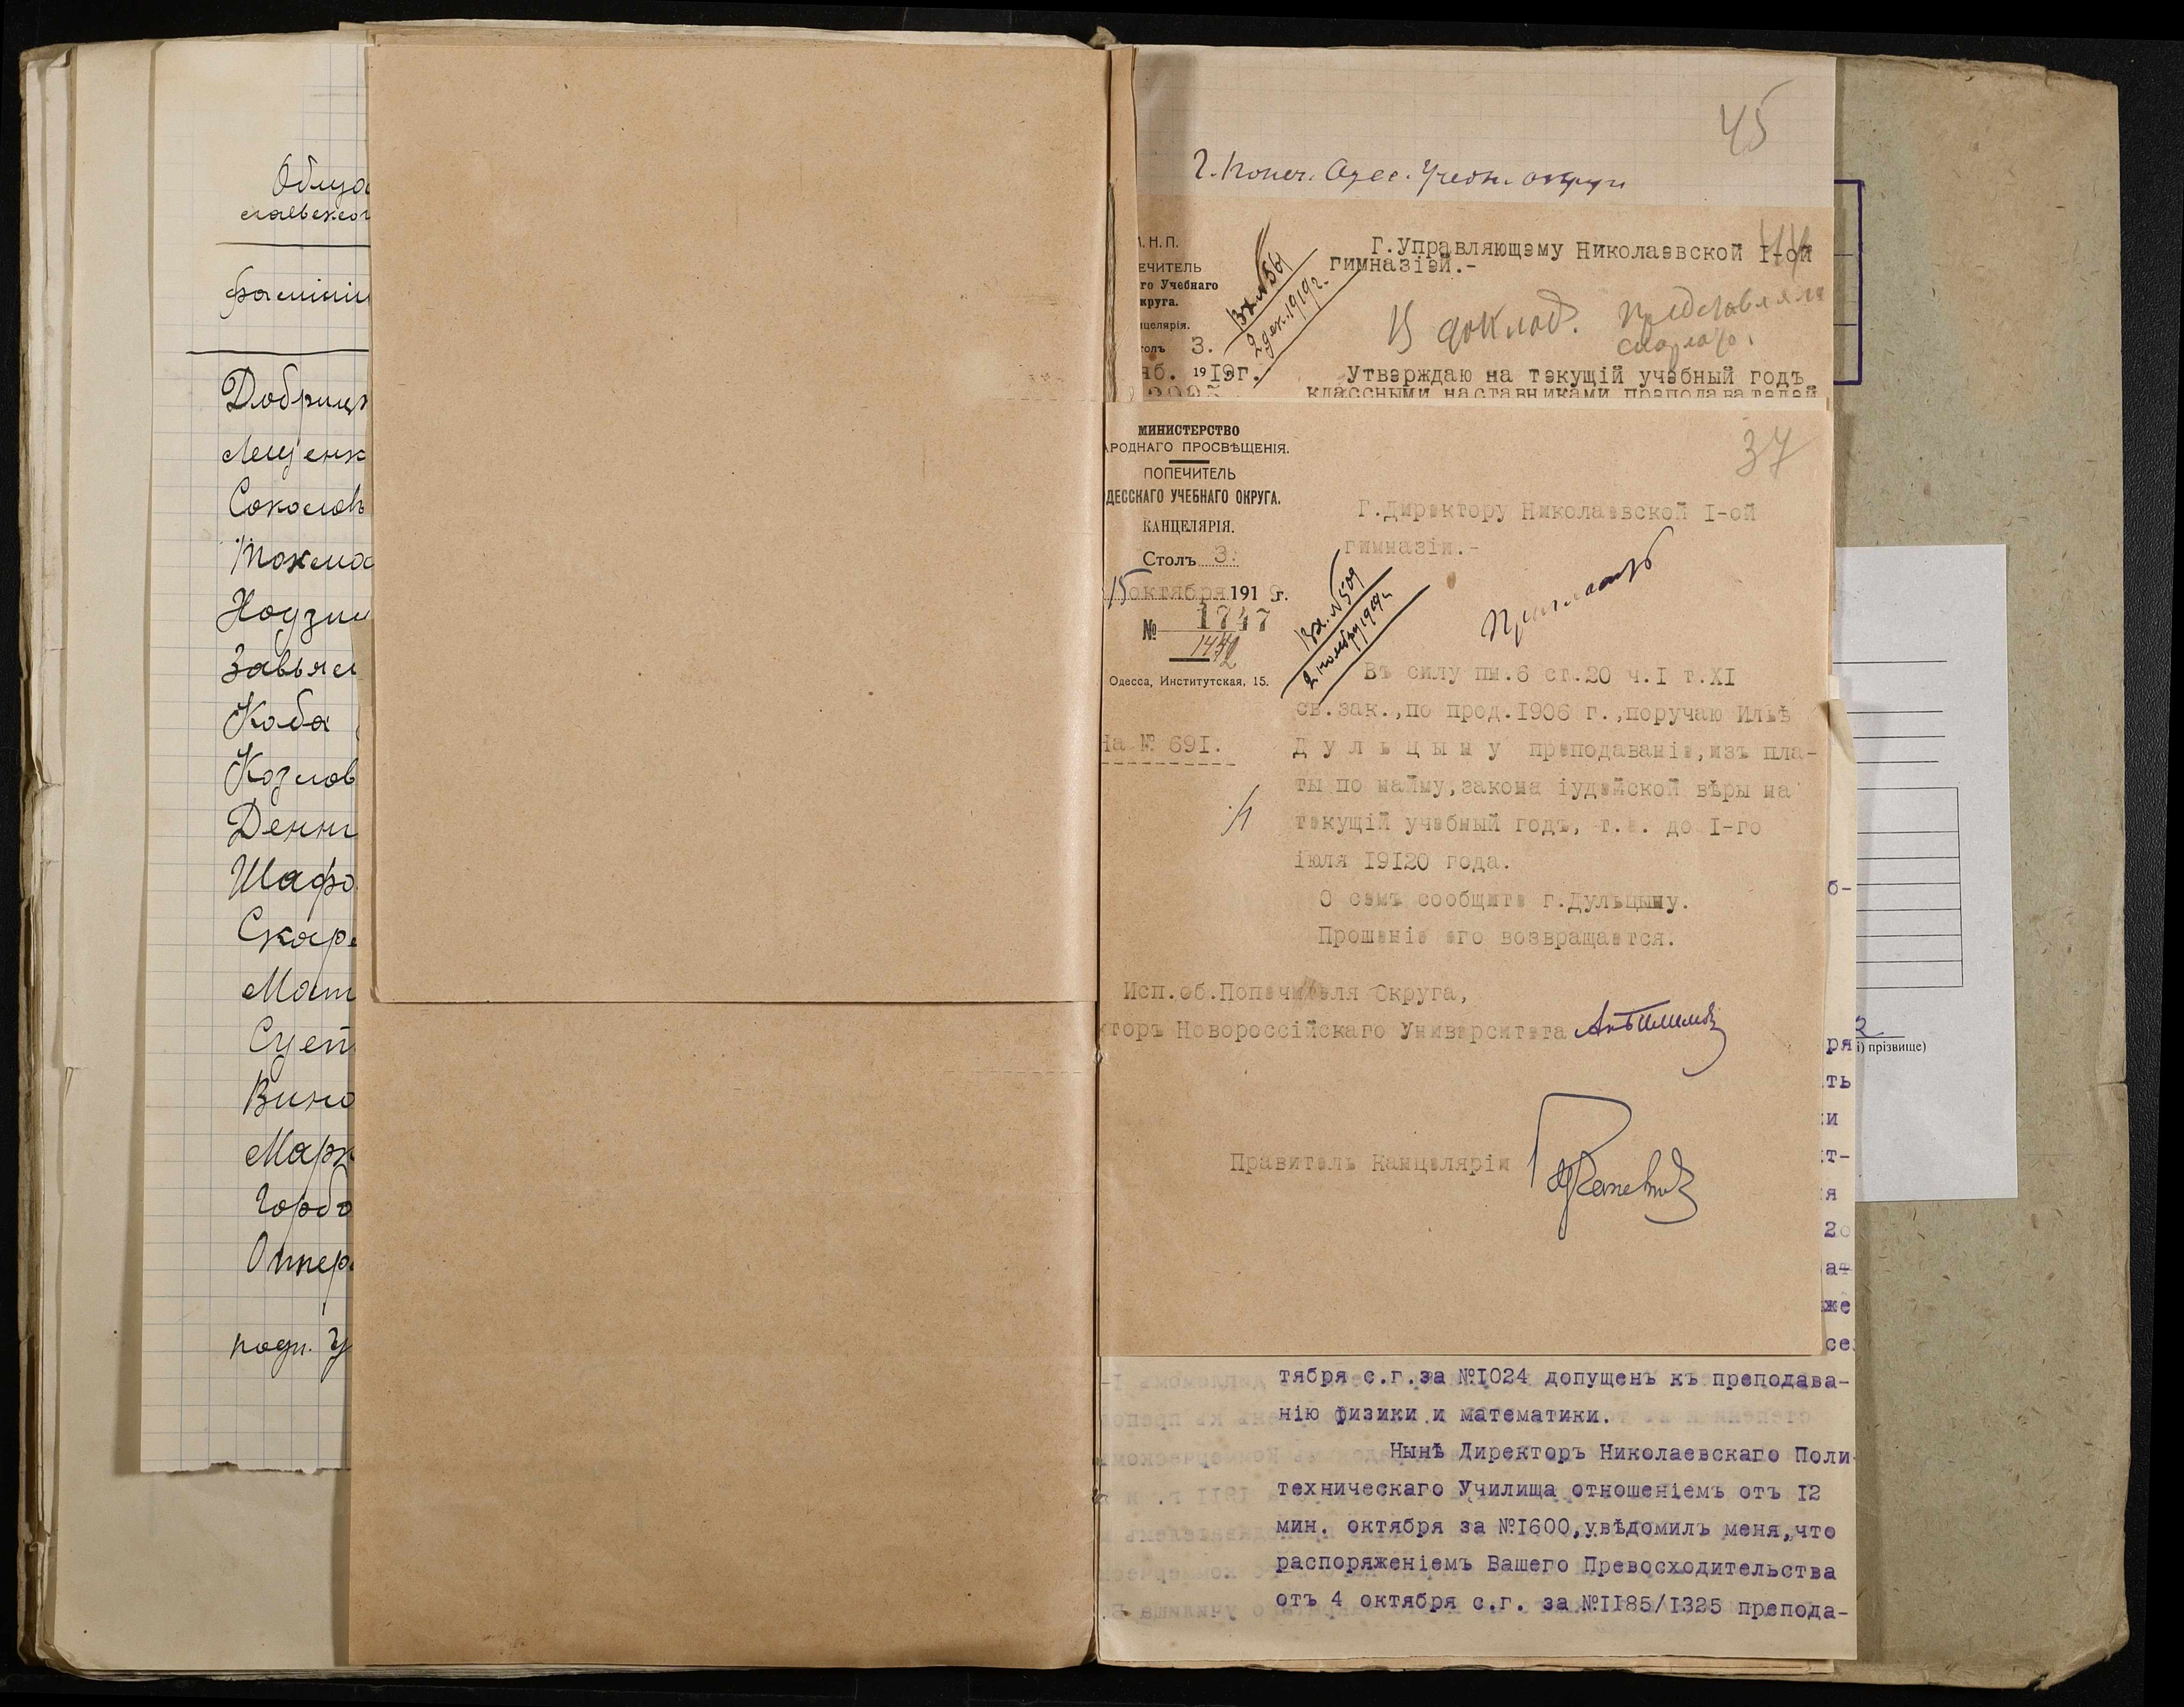 Облуд
славской
фамиліи
Добриц
Лещенк
Соколовъ
Токма
Нодзи
Завьял
Каба
Козлов
Денни
Шафо
Скар
Мат
Сует
Вино
Марк
Горбо
Оппер
подп.
45
Г. Попеч. Одес. Учебн. округа
.Н.П.
ЕЧИТЕЛЬ
го Учебнаго
круга.
нцелярія.
толъ 3.
яб. 1919г.
Вх. №561
2 дек. 1919 г.
Г.Управляющему Николаевской I-ой
гимназіей.-
В доклад.
Утверждаю на текущій учебный годъ
классными наставниками преподавателей
37
МИНИСТЕРСТВО
АРОДНАГО ПРОСВѢЩЕНІЯ.
ПОПЕЧИТЕЛЬ
ДЕССКАГО УЧЕБНАГО ОКРУГА.
КАНЦЕЛЯРІЯ.
Столъ 3.
15 октября 1919 г.
№ 1747
1472
Одесса, Институтская, 15.
На № 691.
Г.Директору Николаевской I-ой
гимназіи.-
Вх. №509
2 ноября 1919 г.
Пригласить
Въ силу пм.6 ст.20 ч.I т.XI
св.зак.,по прод.1906 г.,поручаю Ильѣ
Дульцыну преподаваніе,изъ пла-
ты по найму,закона іудейской вѣры на
текущій учебный годъ, т.е. до I-го
іюля 19120 года.
О семъ сообщите г.Дульцыну.
Прошеніе его возвращается.
Исп.об.Попечителя Округа,
кторъ Новороссійскаго Университета
Правитель Канцеляріи
б-
ря
ть
и
т-
я
20
ат
же
се
і) прізвище)
тября с.г.за №1024 допущенъ къ преподава-
нію физики и математики.
Нынѣ Директоръ Николаевскаго Поли
техническаго Училища отношеніемъ отъ 12
мин. октября за №1600,увѣдомилъ меня,что
распоряженіемъ Вашего Превосходительства
отъ 4 октября с.г. за №1185/1325 препода-